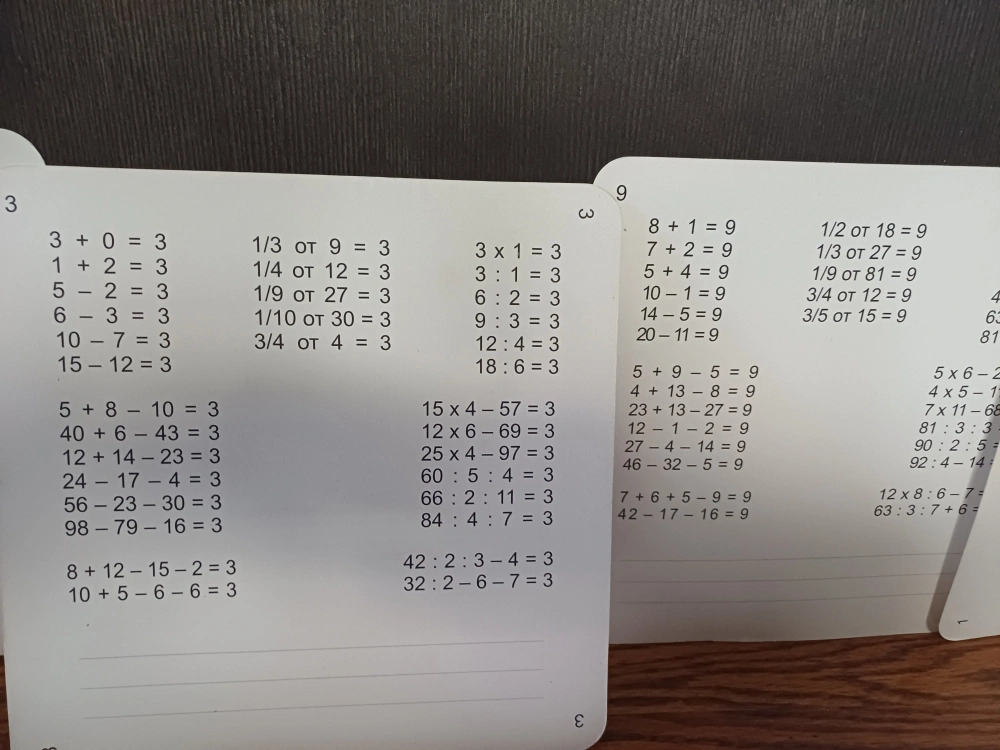 3
3
3 + 0 = 3
1 + 2 = 3
5 – 2 = 3
6 – 3 = 3
10 – 7 = 3
15 – 12 = 3
1/3 от 9 = 3
1/4 от 12 = 3
1/9 от 27 = 3
1/10 от 30 = 3
3/4 от 4 = 3
3 x 1 = 3
3 : 1 = 3
6 : 2 = 3
9 : 3 = 3
12 : 4 = 3
18 : 6 = 3
5 + 8 – 10 = 3
40 + 6 – 43 = 3
12 + 14 – 23 = 3
24 – 17 – 4 = 3
56 – 23 – 30 = 3
98 – 79 – 16 = 3
15 x 4 – 57 = 3
12 x 6 – 69 = 3
25 x 4 – 97 = 3
60 : 5 : 4 = 3
66 : 2 : 11 = 3
84 : 4 : 7 = 3
8 + 12 – 15 – 2 = 3
10 + 5 – 6 – 6 = 3
42 : 2 : 3 – 4 = 3
32 : 2 – 6 – 7 = 3
3
9
8 + 1 = 9
7 + 2 = 9
5 + 4 = 9
10 – 1 = 9
14 – 5 = 9
20 – 11 = 9
1/2 от 18 = 9
1/3 от 27 = 9
1/9 от 81 = 9
3/4 от 12 = 9
3/5 от 15 = 9
4
63
81
5 + 9 – 5 = 9
4 + 13 – 8 = 9
23 + 13 – 27 = 9
12 – 1 – 2 = 9
27 – 4 – 14 = 9
46 – 32 – 5 = 9
5 x 6 – 2
4 x 5 – 11
7 x 11 – 68
81 : 3 : 3
90 : 2 : 5 =
92 : 4 – 14 =
7 + 6 + 5 – 9 = 9
42 – 17 – 16 = 9
12 x 8 : 6 – 7 =
63 : 3 : 7 + 6 =
1